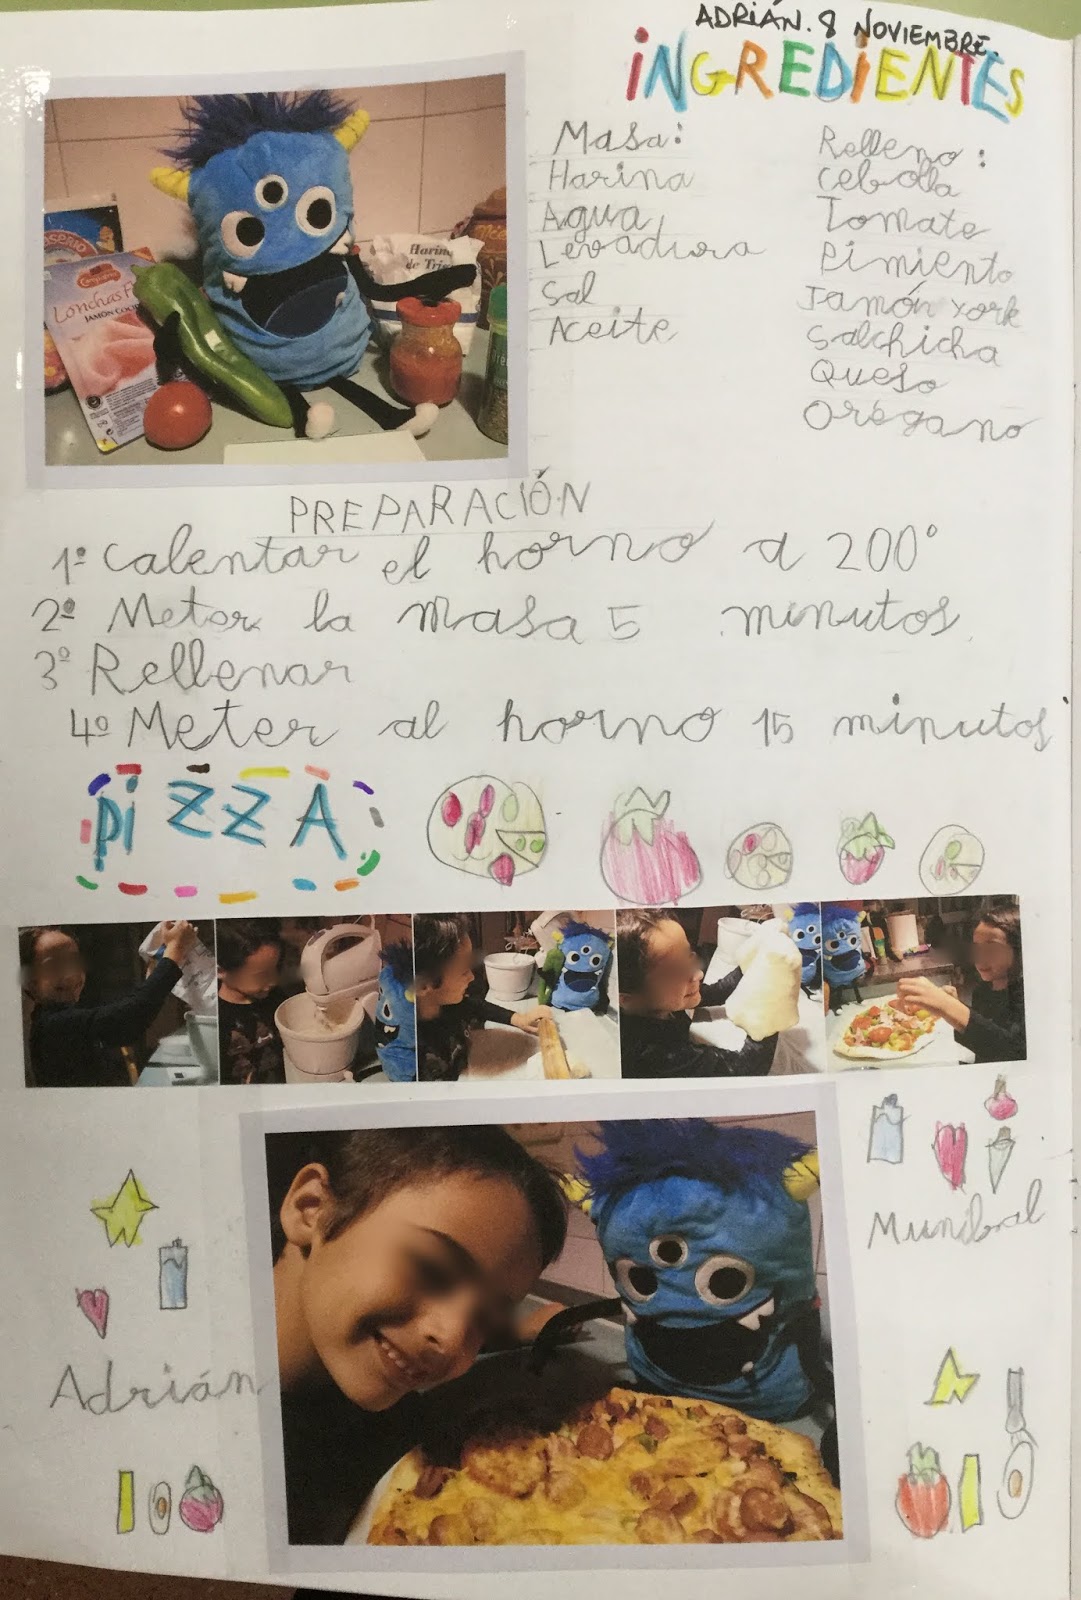 ADRIÁN. 8 NOVIEMBRE.
iNGREDiENTES
Masa:
Harina
Agua
Levadura
Sal
Aceite
Relleno:
Cebolla
Tomate
Pimiento
Jamón York
Salchicha
Queso
Orégano
Lonchas
JAMÓN
Harina
de
PREPARACIÓN
1º Calentar el horno a 200º
2º Meter la masa 5 minutos.
3º Rellenar
4º Meter al horno 15 minutos
piZZA
Adrián